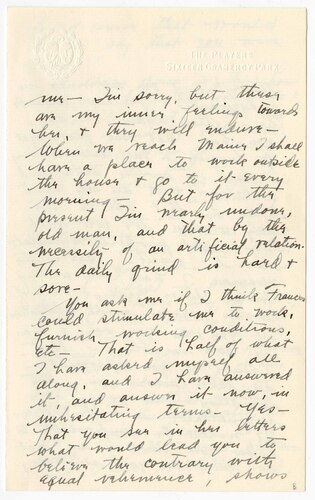 THE PLAYERS
SIXTEEN GRAMERCY PARK
me — I'm sorry, but these
are my inner feelings towards
her, & they will endure —
When we reach Maine I shall
have a place to work outside
the house & go to it every
morning — But for the
present I'm nearly undone,
old man, and that by the
necessity of an artificial relation.
The daily grind is hard &
sore —
You ask me if I think Frances
could stimulate me to work,
furnish working conditions,
etc — That is half of what
I have asked myself all
along, and I have answered
it, and answer it now, in
unhesitating terms — Yes —
That you see in her letters
what would lead you to
believe the contrary with
equal vehemence, shows
8